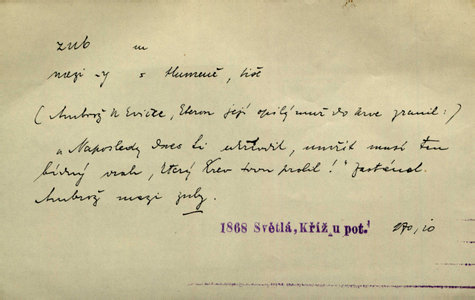 zub m
mezi -y s tlumeně, tiše
(Ambrož k Evičce, kterou její opilý muž do krve zranil:)
„Naposledy dnes ti ublížil, umřít musí ten
bídný vrah, který krev tvou prolil!" zasténal
Ambrož mezi zuby.
1868 Světlá, Kříž u pot. 270, 10